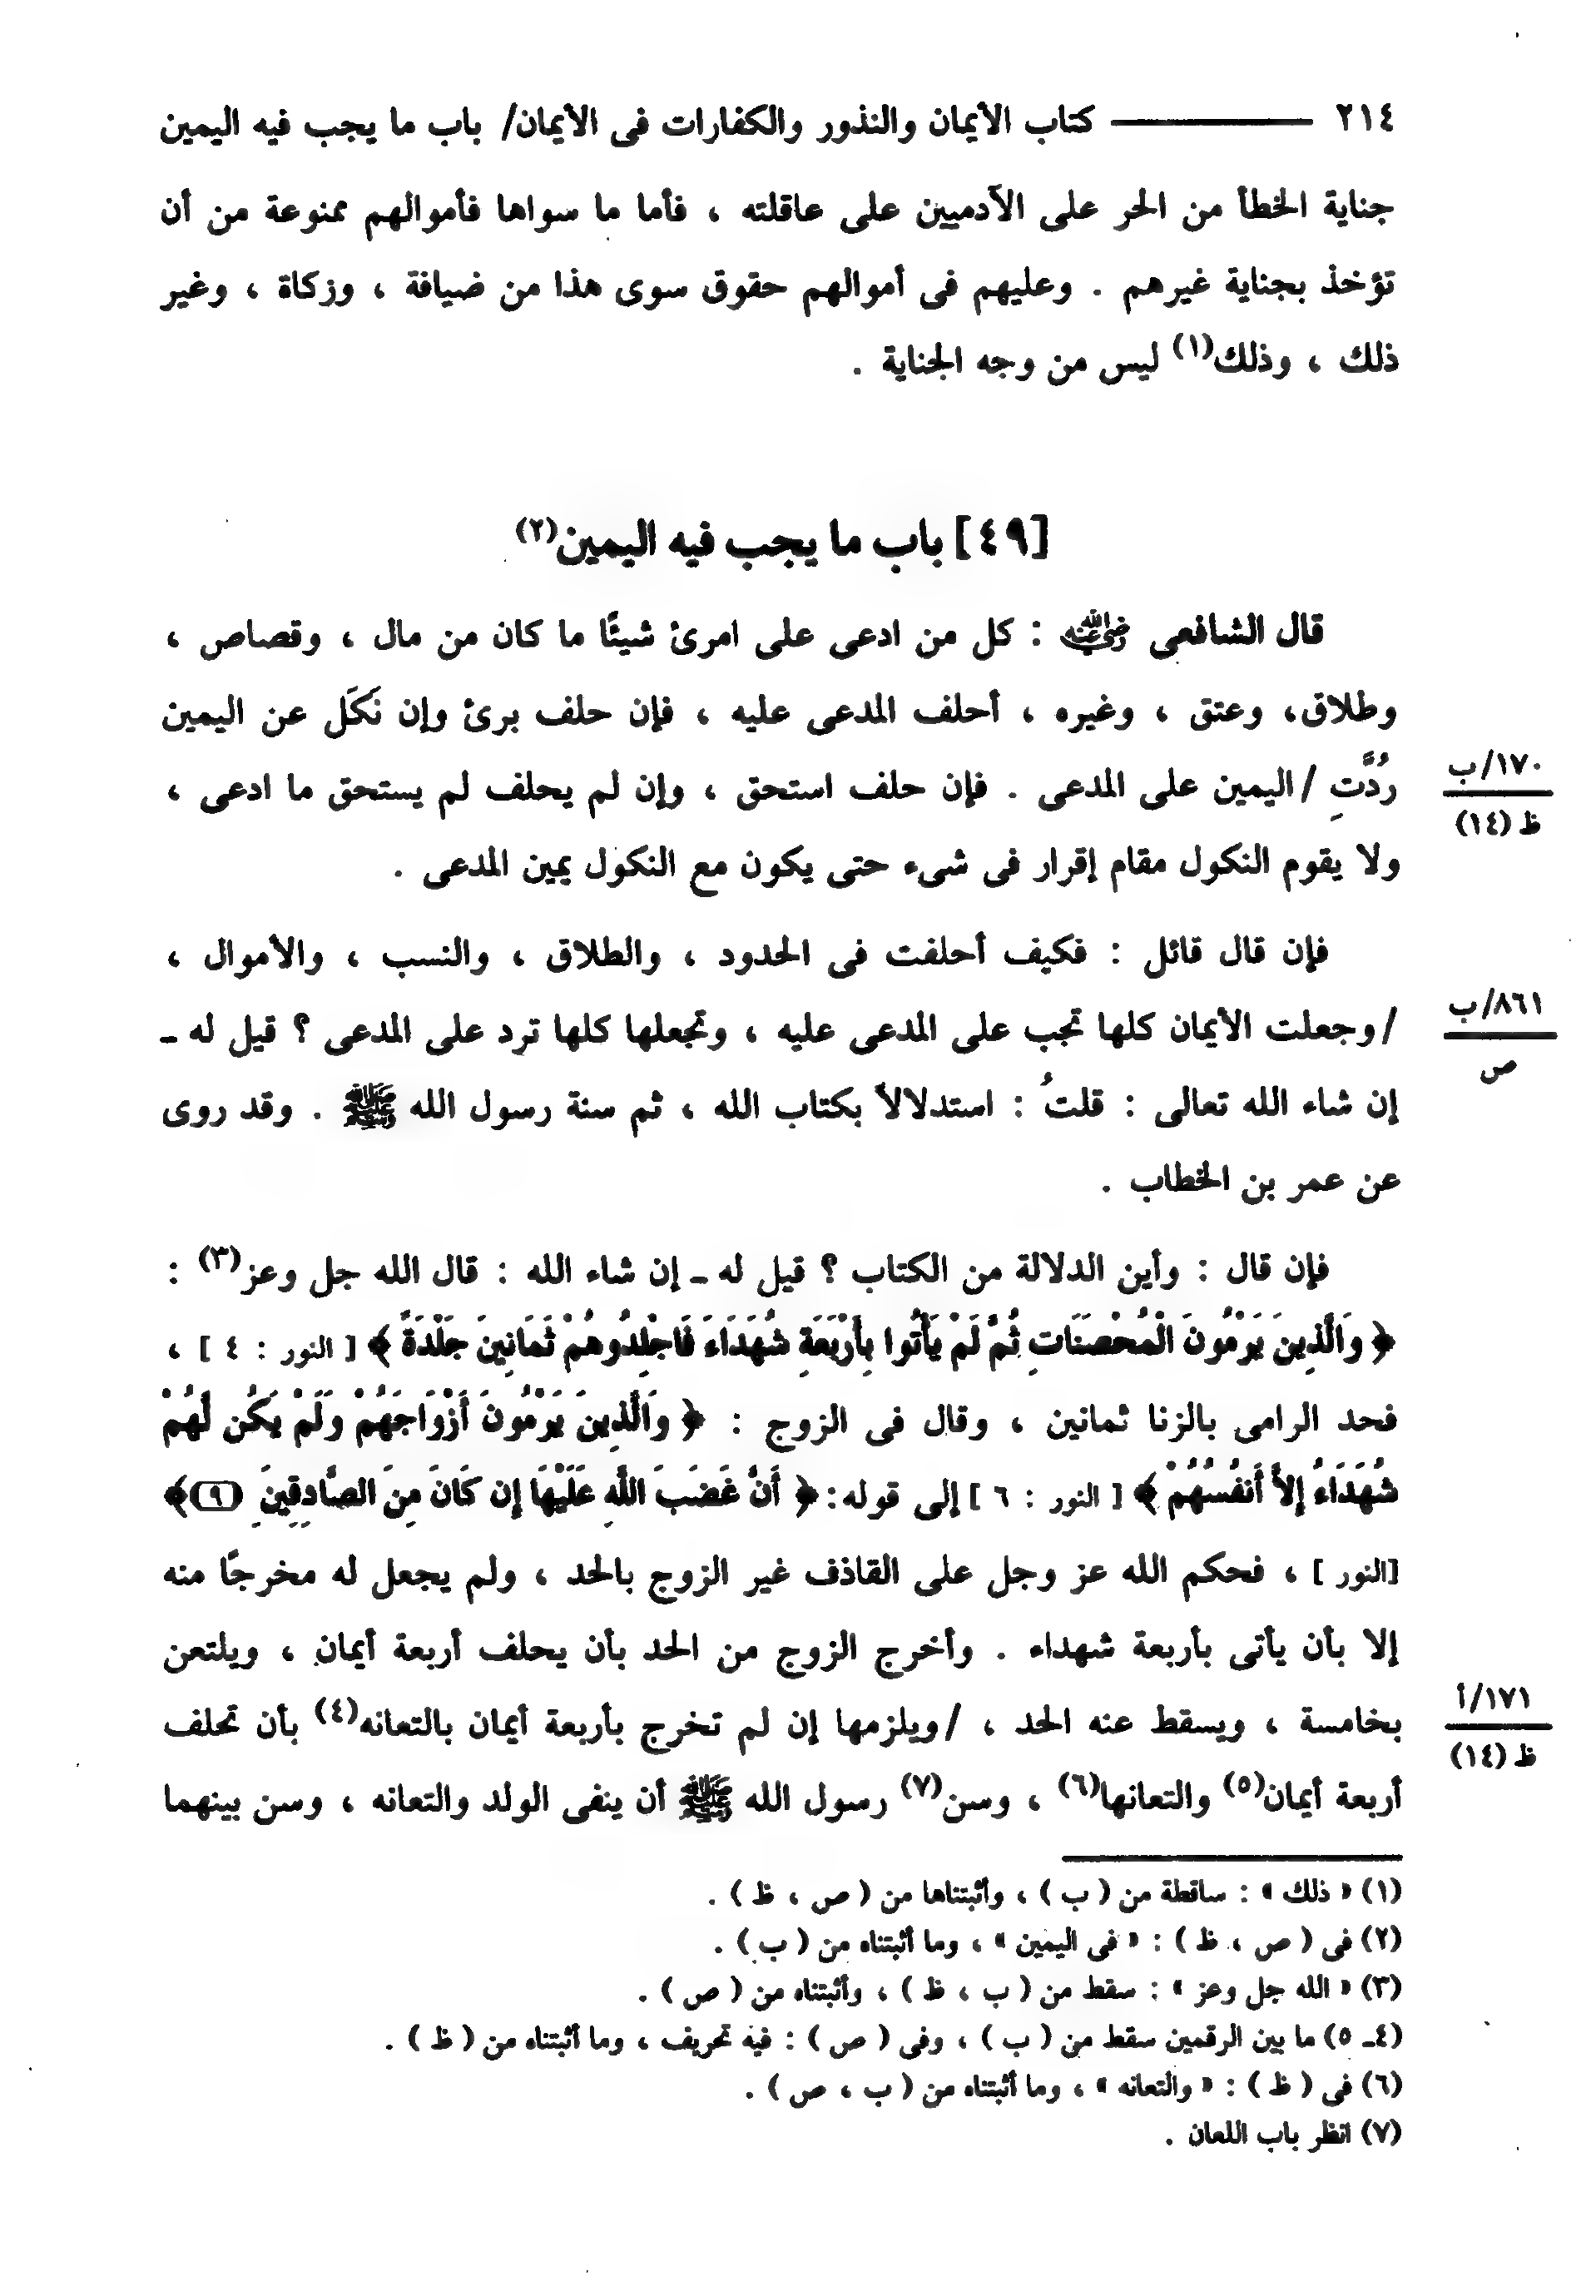 ٢١٤ ـــــــ كتاب الأيمان والنذور والكفارات فى الأيمان/ باب ما يجب فيه اليمين
جناية الخطأ من الحر على الآدميين على عاقلته ، فأما ما سواها فأموالهم ممنوعة من أن
تؤخذ بجناية غيرهم . وعليهم فى أموالهم حقوق سوى هذا من ضيافة ، وزكاة ، وغير
ذلك ، وذلك(١) ليس من وجه الجناية .
[٤٩] باب ما يجب فيه اليمين(٢)
قال الشافعى رضي الله عنه : كل من ادعى على امرئ شيئًا ما كان من مال ، وقصاص ،
وطلاق، وعتق ، وغيره ، أحلف المدعى عليه ، فإن حلف برئ وإن نَكَل عن اليمين
رُدَّتِ /اليمين على المدعى . فإن حلف استحق ، وإن لم يحلف لم يستحق ما ادعى ،
١٧٠/ب
ظ (١٤)
ولا يقوم النكول مقام إقرار فى شىء حتى يكون مع النكول يمين المدعى .
فإن قال قائل : فكيف أحلفت فى الحدود ، والطلاق ، والنسب ، والأموال ،
/وجعلت الأيمان كلها تجب على المدعى عليه ، وتجعلها كلها ترد على المدعى ؟ قيل له ـ
٨٦١/ب
ص
إن شاء الله تعالى : قلتُ : استدلالاً بكتاب الله ، ثم سنة رسول الله ﷺ . وقد روى
عن عمر بن الخطاب .
فإن قال : وأين الدلالة من الكتاب ؟ قيل له ـ إن شاء الله : قال الله جل وعز(٣) :
﴿ وَالَّذِينَ يَرْمُونَ الْمُحْصَنَاتِ ثُمَّ لَمْ يَأْتُوا بِأَرْبَعَةِ شُهَدَاءَ فَاجْلِدُوهُمْ ثَمَانِينَ جَلْدَةً ﴾ [ النور : ٤ ] ،
فحد الرامى بالزنا ثمانين ، وقال فى الزوج : ﴿ وَالَّذِينَ يَرْمُونَ أَزْوَاجَهُمْ وَلَمْ يَكُن لَّهُمْ
شُهَدَاءُ إِلاَّ أَنفُسُهُمْ ﴾ [ النور : ٦ ] إلى قوله: ﴿ أَنَّ غَضَبَ اللَّهِ عَلَيْهَا إِن كَانَ مِنَ الصَّادِقِينَ (٩)﴾
[النور ] ، فحكم الله عز وجل على القاذف غير الزوج بالحد ، ولم يجعل له مخرجًا منه
إلا بأن يأتى بأربعة شهداء . وأخرج الزوج من الحد بأن يحلف أربعة أيمان ، ويلتعن
بخامسة ، ويسقط عنه الحد ، /ويلزمها إن لم تخرج بأربعة أيمان بالتعانه(٤) بأن تحلف
١٧١/أ
ظ (١٤)
أربعة أيمان(٥) والتعانها(٦) ، وسن(٧) رسول الله ﷺ أن ينفى الولد والتعانه ، وسن بينهما
(١) « ذلك » : ساقطة من ( ب ) ، وأثبتناها من ( ص ، ظ ) .
(٢) فى ( ص ، ظ ) : « فى اليمين » ، وما أثبتناه من ( ب ) .
(٣) « الله جل وعز » : سقط من ( ب ، ظ ) ، وأثبتناه من ( ص ) .
(٤ـ ٥) ما بين الرقمين سقط من ( ب ) ، وفى ( ص ) : فيه تحريف ، وما أثبتناه من ( ظ ) .
(٦) فى ( ظ ) : « والتعانه » ، وما أثبتناه من ( ب ، ص ) .
(٧) انظر باب اللعان .